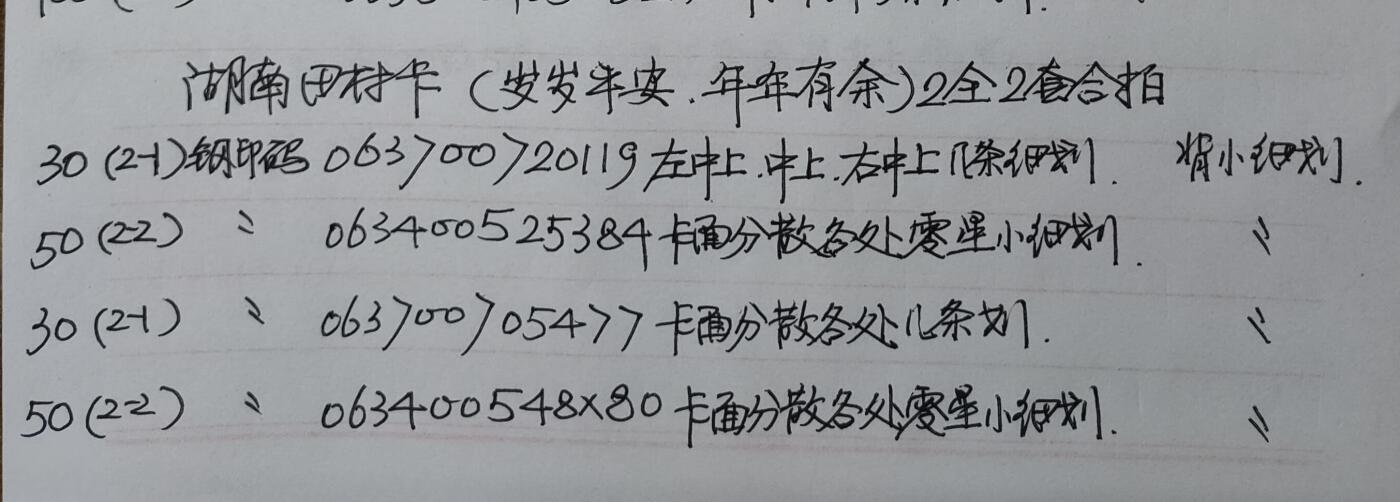 湖南田村卡（岁岁平安.年年有余）2全2套合拍
30（2-1）钢印码 063700720119 左中上.中上.右中上几条细划. 背小细划.
50（2-2） 〃 063400525384 卡面分散各处零星小细划. 〃
30（2-1） 〃 063700705477 卡面分散各处几条划. 〃
50（2-2） 〃 063400548x80 卡面分散各处零星小细划. 〃